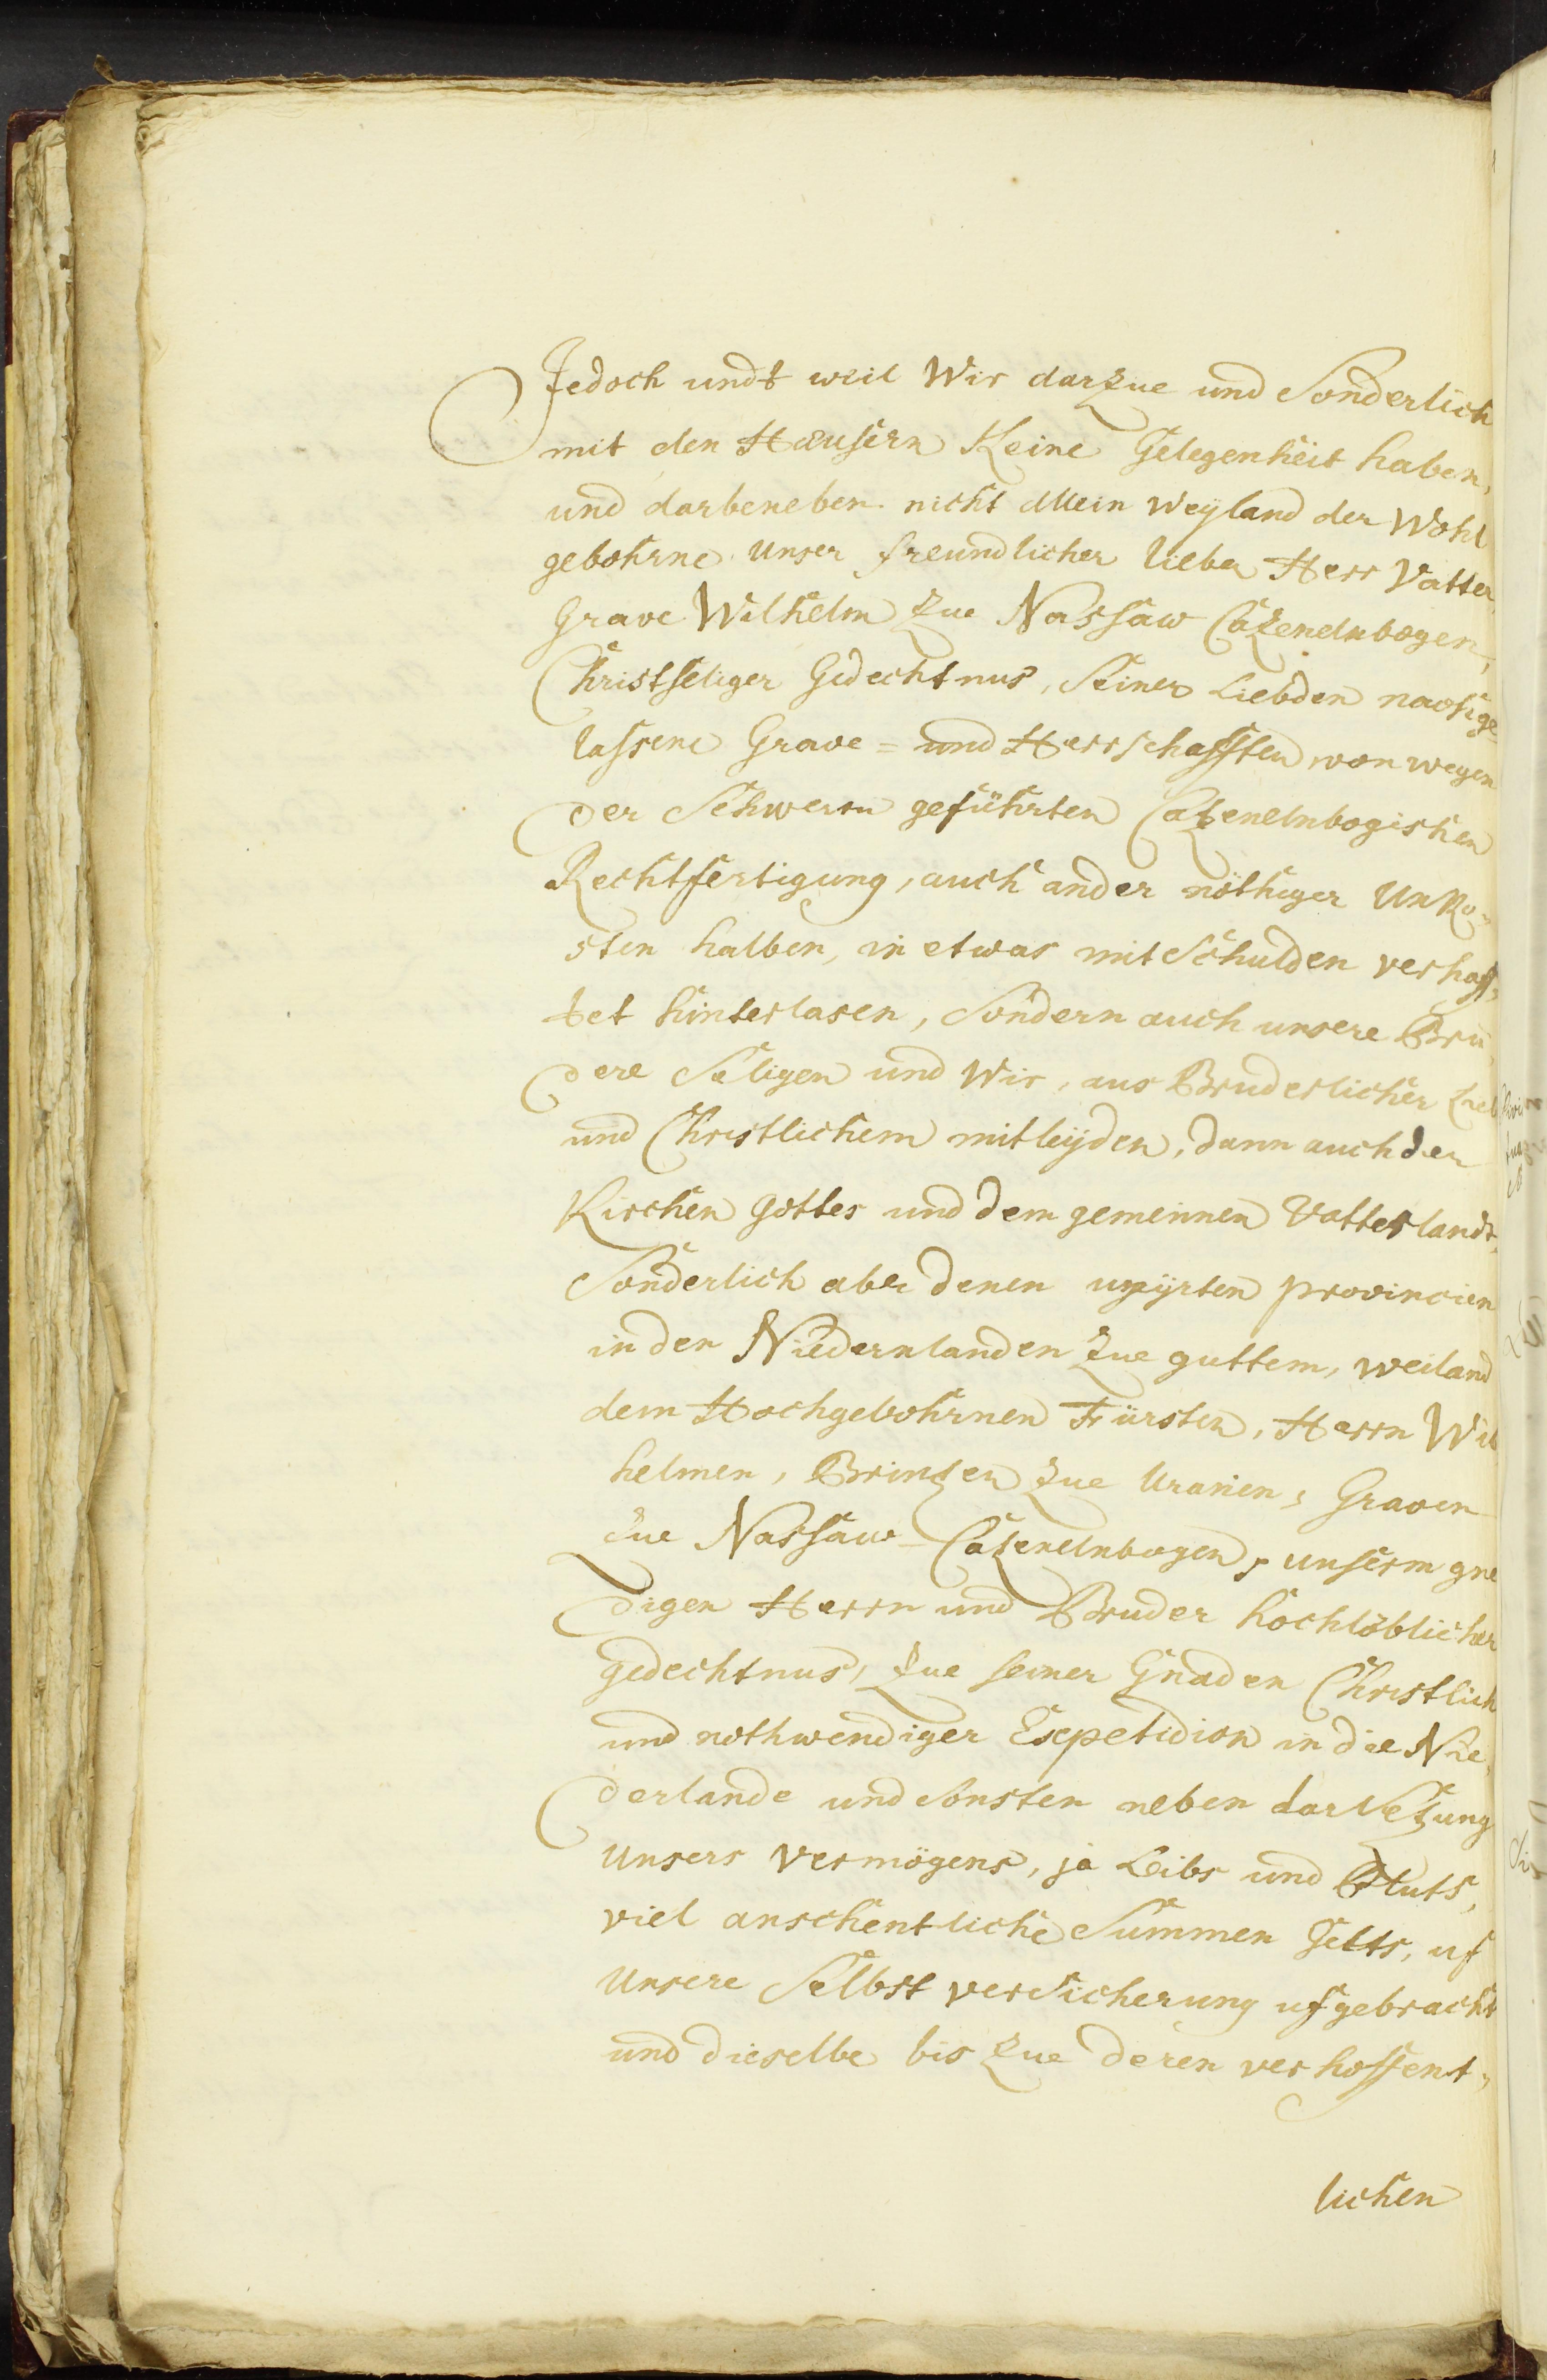 Jedoch undt weil Wir darzue und Sonderlich
mit den Haeusern Keine Gelegenheit haben,
und darbeneben nicht allein weyland der Wohl
gebohrne Unser freundlicher lieber Herr Vatter,
Grave Wilhelm zue Nassaw Catzenelnbogen,
Christseliger Gedechtnus, Seiner Liebden nachge-
lassene Grave = und Herrschafften, von wegen
der Schweren geführten Catzenelnbogischen
Rechtfertigung, auch ander nöthiger UnKo-
sten halben, in etwas mit Schulden verhaff,
tet hinterlasen, Sondern auch unsere Brü,
dere Seligen und Wir, aus Bruderlicher Lieb
und Christlichem mitleyden, dann auch der
Kirchen Gottes und dem gemeinen Vatterlandt,
Sonderlich aber denen unyrten provincien
in den Niedernlanden zue guttem, weiland
dem Hochgebohrnen Fürsten, Herrn Wil
helmen, Printzen zue Uranien, Graven
zue Nassaw-Catzenelnbogen, unserm gne
digen Herrn und Bruder hochlöblicher
gedechtnus, zue seiner Gnaden Christlich
und nothwendiger Expetidion in die Nie,
derlande und Sonsten neben darSetzung
Unsers vermögens, ja Leibs und Bluts,
viel anschentliche Summen Gelts, uf
Unsere Selbst verSicherung ufgebracht
und dieselbe bis zue deren verhoffent,
lichen